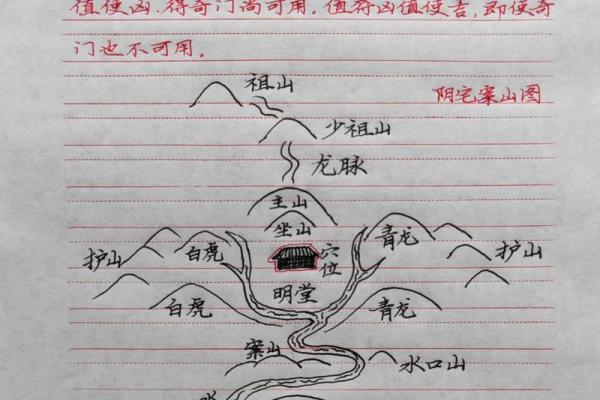 值使凶.得奇门尚可用.值符凶值使吉,即使奇
门也不可用。
祖山
阴宅案山图
少祖山
龙脉
主山
坐山
青龙
白虎
护山
护山
穴位
明堂
白虎
青龙
案山
水口山
水